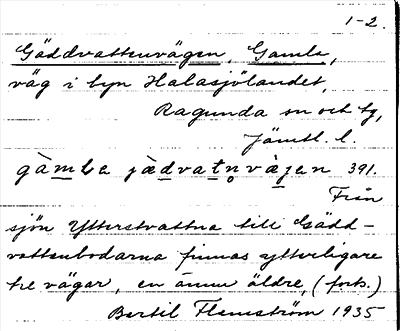 1-2.
Gäddvattenvägen, Gamla,
väg i byn Halasjölandet,
Ragunda sn och tg,
Jämtl. l.
gàmLa jæ̀dvatn̥vàjen 391.
Från
sjön Ytterstvattna till Gädd-
vattenbodarna finnas ytterligare
tre vägar, en ännu äldre, (forts.)
Bertil Flemström 1935